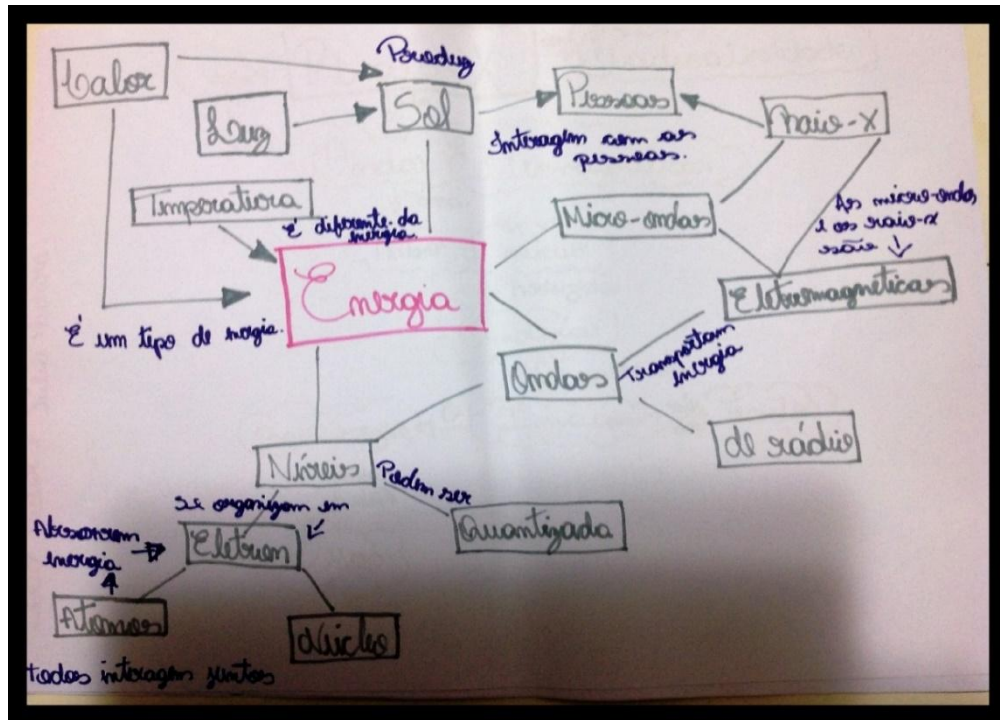 Calor
Produz
Sol
Luz
Pessoas
Raio-X
Interagem com as
pessoas.
Temperatura
É diferente da
energia.
Micro-ondas
As micro-ondas
e os raio-x
são
Energia
Eletromagnéticas
É um tipo de energia.
Ondas
Transportam
energia
de rádio
Níveis
Podem ser
Se organizam em
Quantizada
Absorvem
energia
Eletron
Atomos
Núcleo
todos interagem juntos